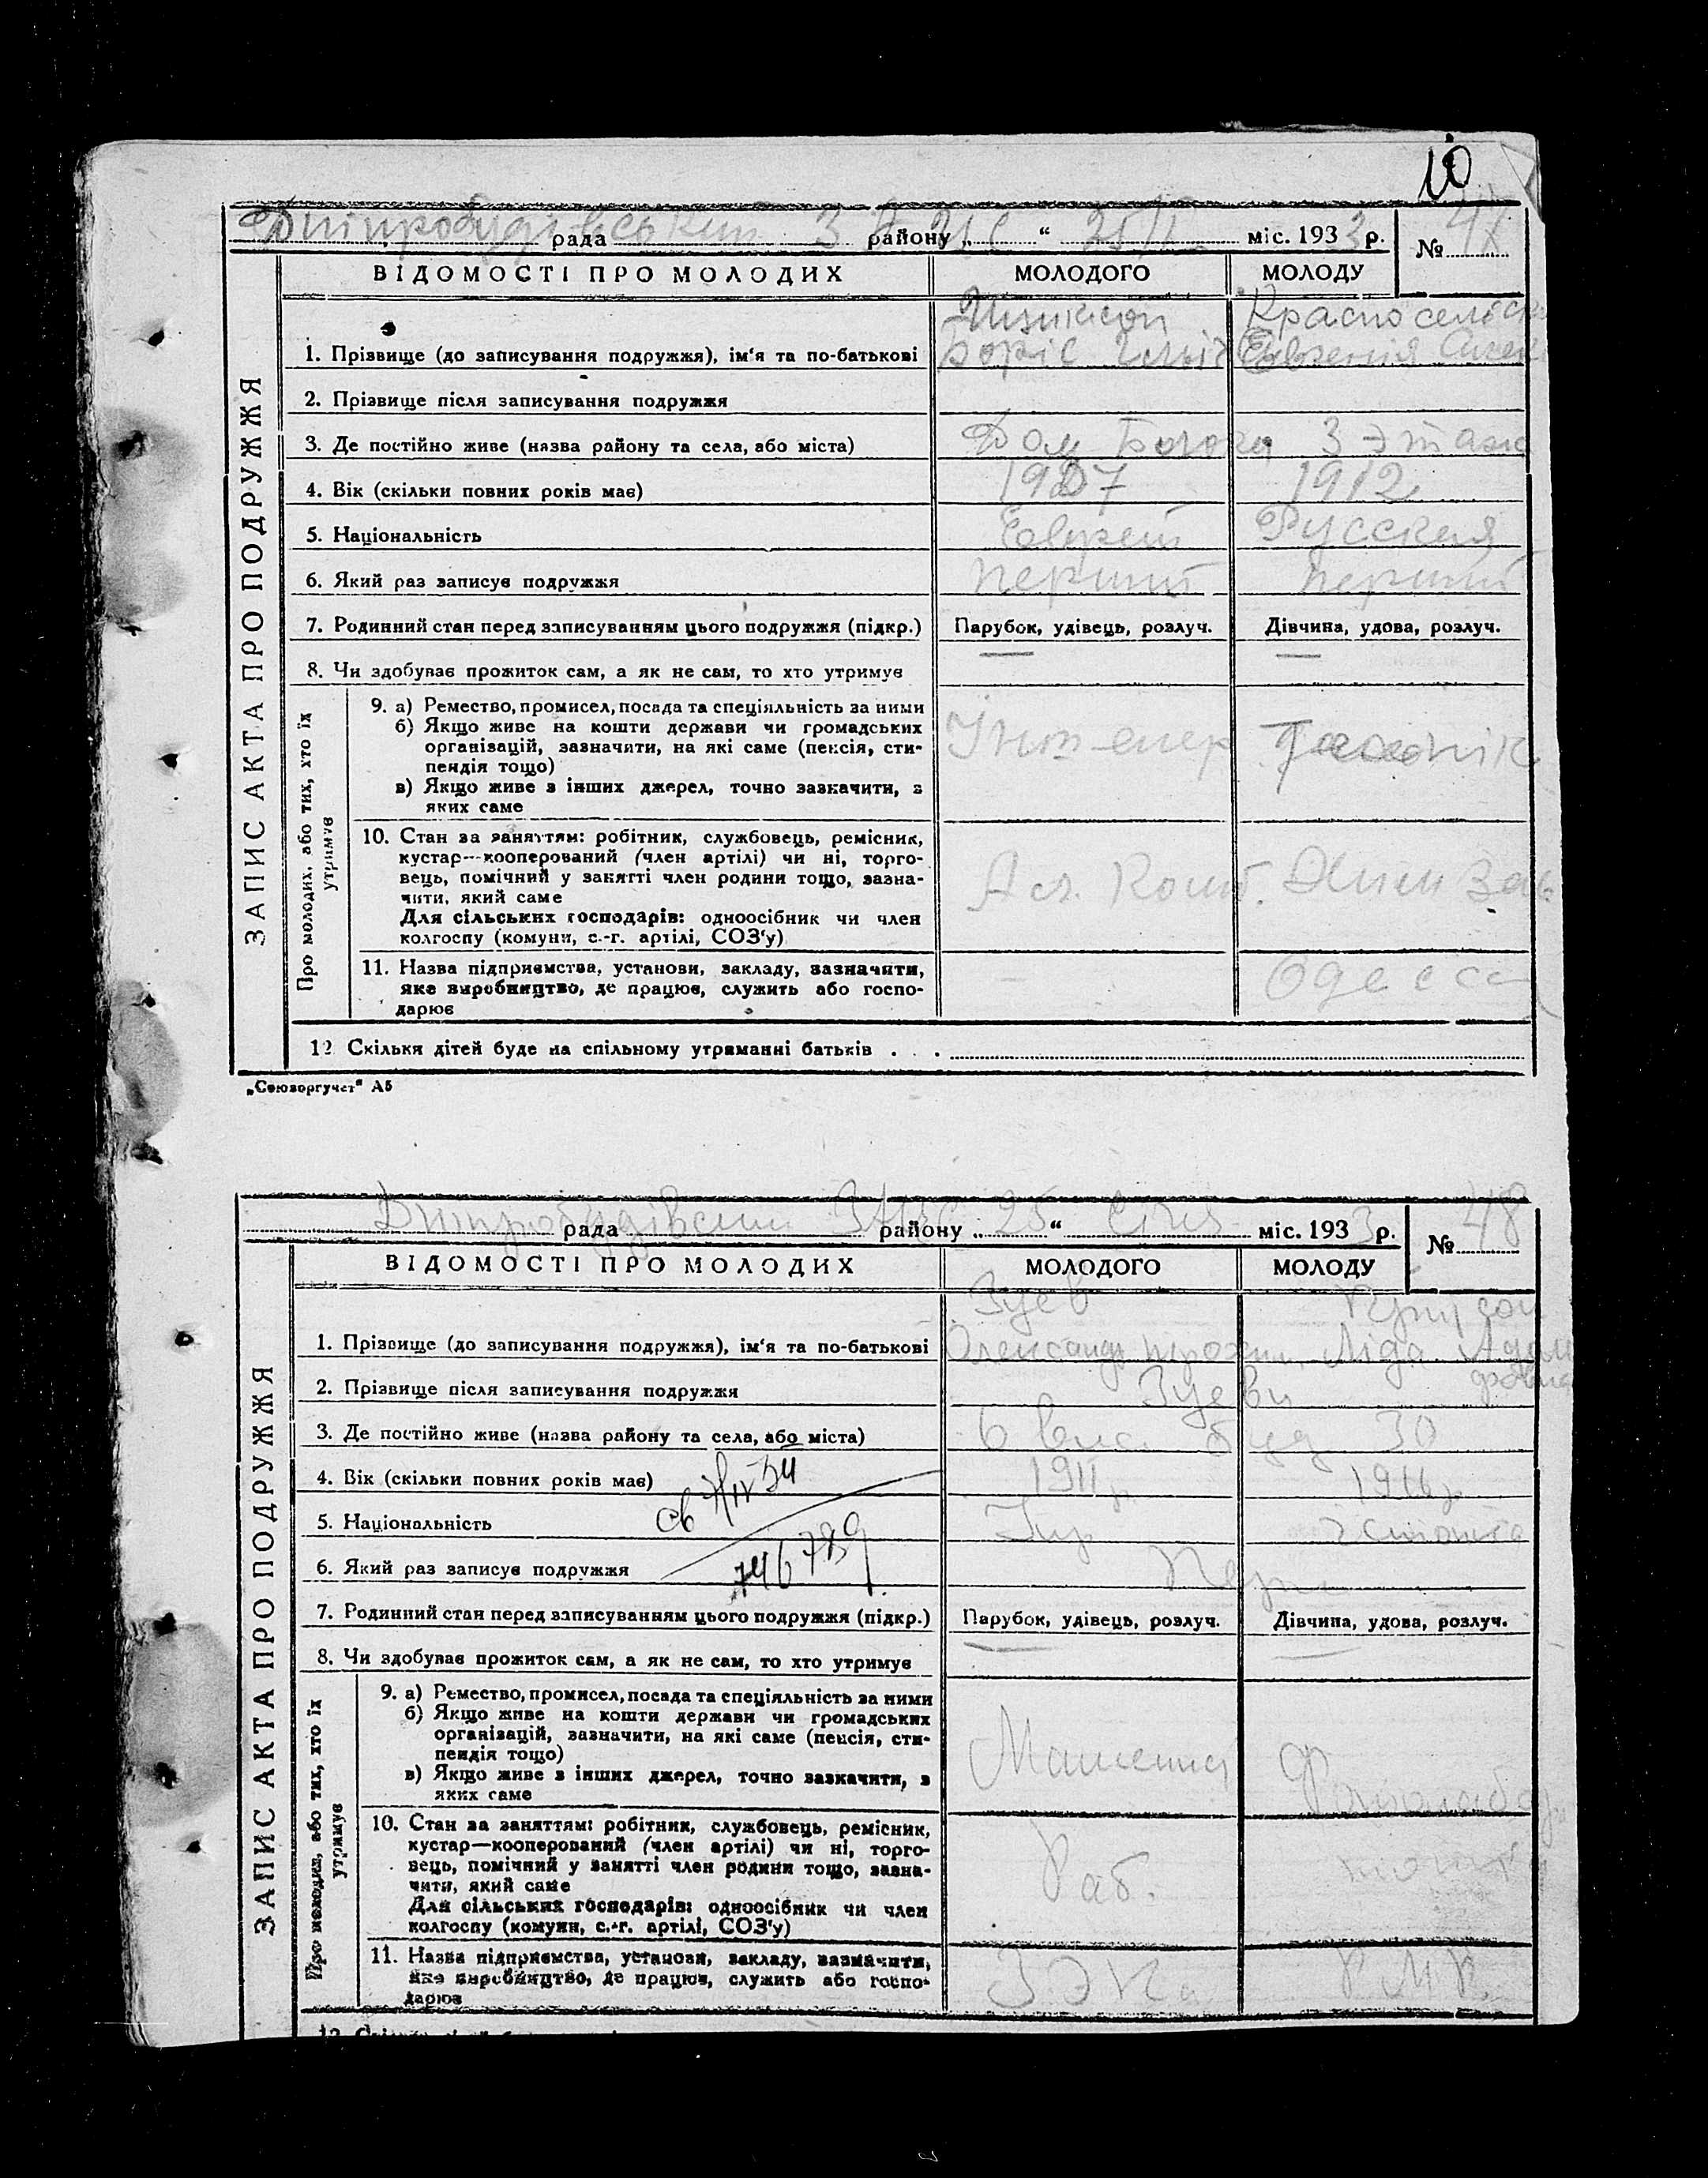 10
Дніпробудівський рада ЗАГС району „ “ 25/I міс. 1933 р. № 47
ЗАПИС АКТА ПРО ПОДРУЖЖЯ
ВІДОМОСТІ ПРО МОЛОДИХ МОЛОДОГО МОЛОДУ
Красносельск
1. Прізвище (до записування подружжя), ім‘я та по-батькові Боріс Ильіч Евгения
2. Прізвище після записування подружжя
3. Де постійно живе (назва району та села, або міста) Дом 3 этаж
4. Вік (скільки повних років має) 1907 1912
5. Національність Еврей Русская
6. Який раз записує подружжя перший перший
7. Родинний стан перед записуванням цього подружжя (підкр.) Парубок, удівець, розлуч. Дівчина, удова, розлуч.
8. Чи здобуває прожиток сам, а як не сам, то хто утримує
Про молодих, або тих, хто їх утримує
9. а) Ремество, промисел, посада та спеціяльність за ними
б) Якщо живе на кошти держави чи громадських
організацій, зазначити, на які саме (пенсія, сти-
пендія тощо)
в) Якщо живе з інших джерел, точно зазначити, з
яких саме
Інженер
10. Стан за заняттям: робітник, службовець, ремісник,
кустар—кооперований (член артілі) чи ні, торго-
вець, помічний у занятті член родини тощо, зазна-
чити, який саме
Для сільських господарів: одноосібник чи член
колгоспу (комуни, с.-г. артілі, СОЗ‘у)
Ал. Комб. Зав
11. Назва підприємства, установи, закладу, зазначити,
яке виробництво, де працює, служить або госпо-
дарює
Одесса
12 Скільки дітей буде на спільному утриманні батьків . . .
„Союзоргучет“ А5
Дніпробудівський рада ЗАГС району „ 25 “ Січня міс. 1933 р. № 48
ЗАПИС АКТА ПРО ПОДРУЖЖЯ
ВІДОМОСТІ ПРО МОЛОДИХ МОЛОДОГО МОЛОДУ
Зуев
1. Прізвище (до записування подружжя), ім‘я та по-батькові Олександр Ліда
2. Прізвище після записування подружжя Зуеви
3. Де постійно живе (назва району та села, або міста) 6 вис. буд 30
4. Вік (скільки повних років має) 1911 р
5. Національність Укр
6. Який раз записує подружжя Перш
746789
7. Родинний стан перед записуванням цього подружжя (підкр.) Парубок, удівець, розлуч. Дівчина, удова, розлуч.
8. Чи здобуває прожиток сам, а як не сам, то хто утримує
Про молодих, або тих, хто їх утримує
9. а) Ремество, промисел, посада та спеціяльність за ними
б) Якщо живе на кошти держави чи громадських
організацій, зазначити, на які саме (пенсія, сти-
пендія тощо)
в) Якщо живе з інших джерел, точно зазначити, з
яких саме
10. Стан за заняттям: робітник, службовець, ремісник,
кустар—кооперований (член артілі) чи ні, торго-
вець, помічний у занятті член родини тощо, зазна-
чити, який саме
Для сільських господарів: одноосібник чи член
колгоспу (комуни, с.-г. артілі, СОЗ‘у)
Раб.
11. Назва підприємства, установи, закладу, зазначити,
яке виробництво, де працює, служить або госпо-
дарює